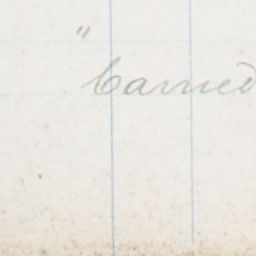 "
Carried